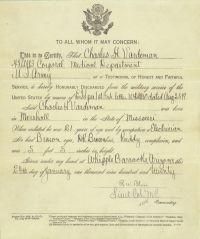 TO ALL WHOM IT MAY CONCERN:
This is to Certify, That Charles H. Vardeman
Corporal Medical Department
U.S. Army as a TESTIMONIAL OF HONEST AND FAITHFUL
SERVICE, is hereby HONORABLY DISCHARGED from the military service of the
UNITED STATES by reason of
Said Charles H. Vardeman was born
in Marshall, in the State of Missouri
When enlisted he was 21 years of age and by occupation
He had Brown eyes, Brown hair, Ruddy complexion, and
was 5 feet 5 inches in height.
Given under my hand at Whipple Barracks Arizona this
day of January one thousand nine hundred and twenty
Commanding.